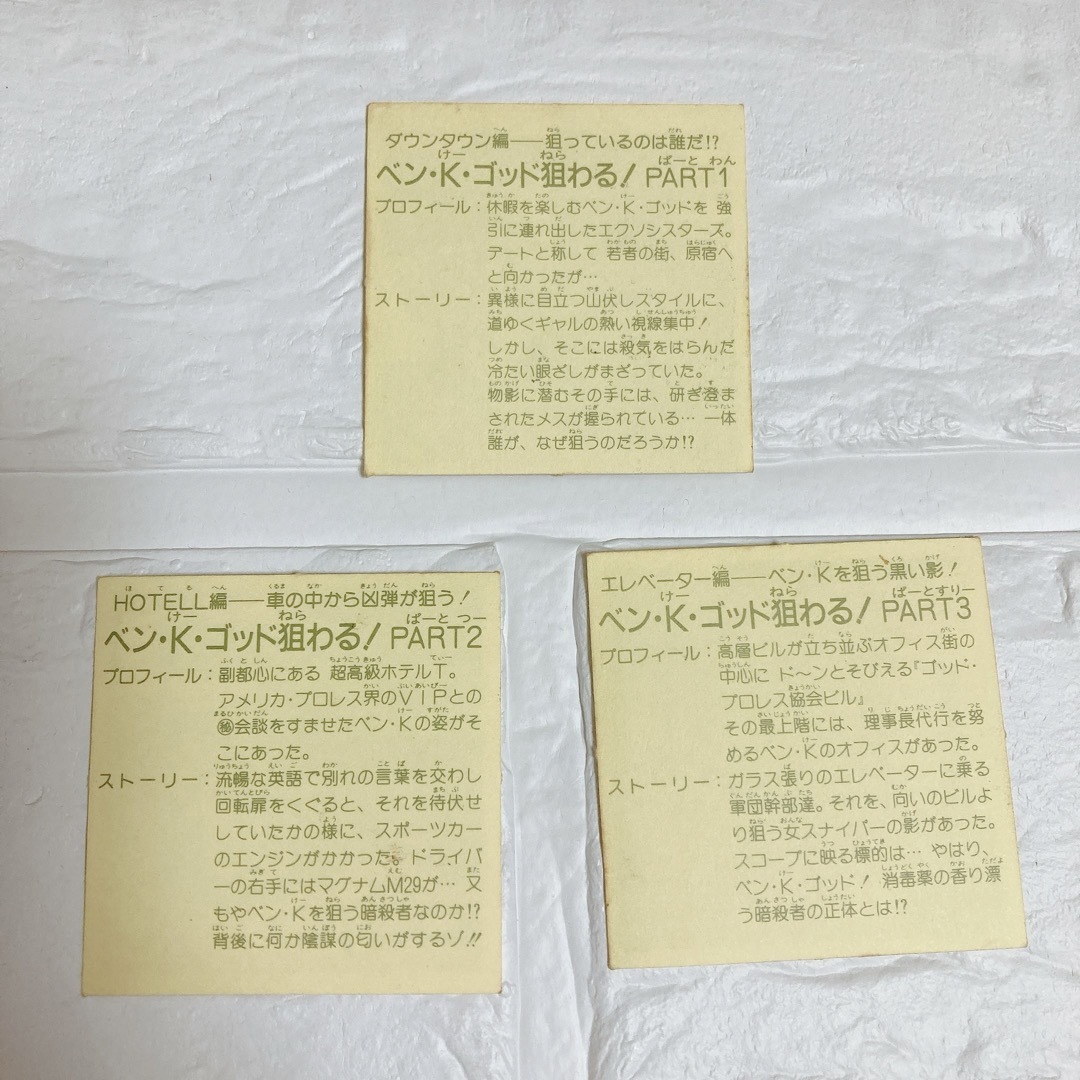 ダウンタウン編──狙っているのは誰だ!?
ベン・K・ゴッド狙わる! PART1
プロフィール：休暇を楽しむベン・K・ゴッドを 強
引に連れ出したエクソシスターズ。
デートと称して 若者の街、原宿へ
と向かったが…
ストーリー：異様に目立つ山伏しスタイルに、
道ゆくギャルの熱い視線集中!
しかし、そこには殺気をはらんだ
冷たい眼ざしがまざっていた。
物影に潜むその手には、研ぎ澄ま
されたメスが握られている… 一体
誰が、なぜ狙うのだろうか!?
HOTELL編──車の中から凶弾が狙う!
ベン・K・ゴッド狙わる! PART2
プロフィール：副都心にある 超高級ホテルT。
アメリカ・プロレス界のVIPとの
㊙会談をすませたベン・Kの姿がそ
こにあった。
ストーリー：流暢な英語で別れの言葉を交わし
回転扉をくぐると、それを待伏せ
していたかの様に、スポーツカー
のエンジンがかかった。ドライバ
ーの右手にはマグナムM29が… 又
もやベン・Kを狙う暗殺者なのか!?
背後に何か陰謀の匂いがするゾ!!
エレベーター編──ベン・Kを狙う黒い影!
ベン・K・ゴッド狙わる! PART3
プロフィール：高層ビルが立ち並ぶオフィス街の
中心に ド〜ンとそびえる『ゴッド・
プロレス協会ビル』
その最上階には、理事長代行を努
めるベン・Kのオフィスがあった。
ストーリー：ガラス張りのエレベーターに乗る
軍団幹部達。それを、向いのビルよ
り狙う女スナイパーの影があった。
スコープに映る標的は… やはり、
ベン・K・ゴッド! 消毒薬の香り漂
う暗殺者の正体とは!?